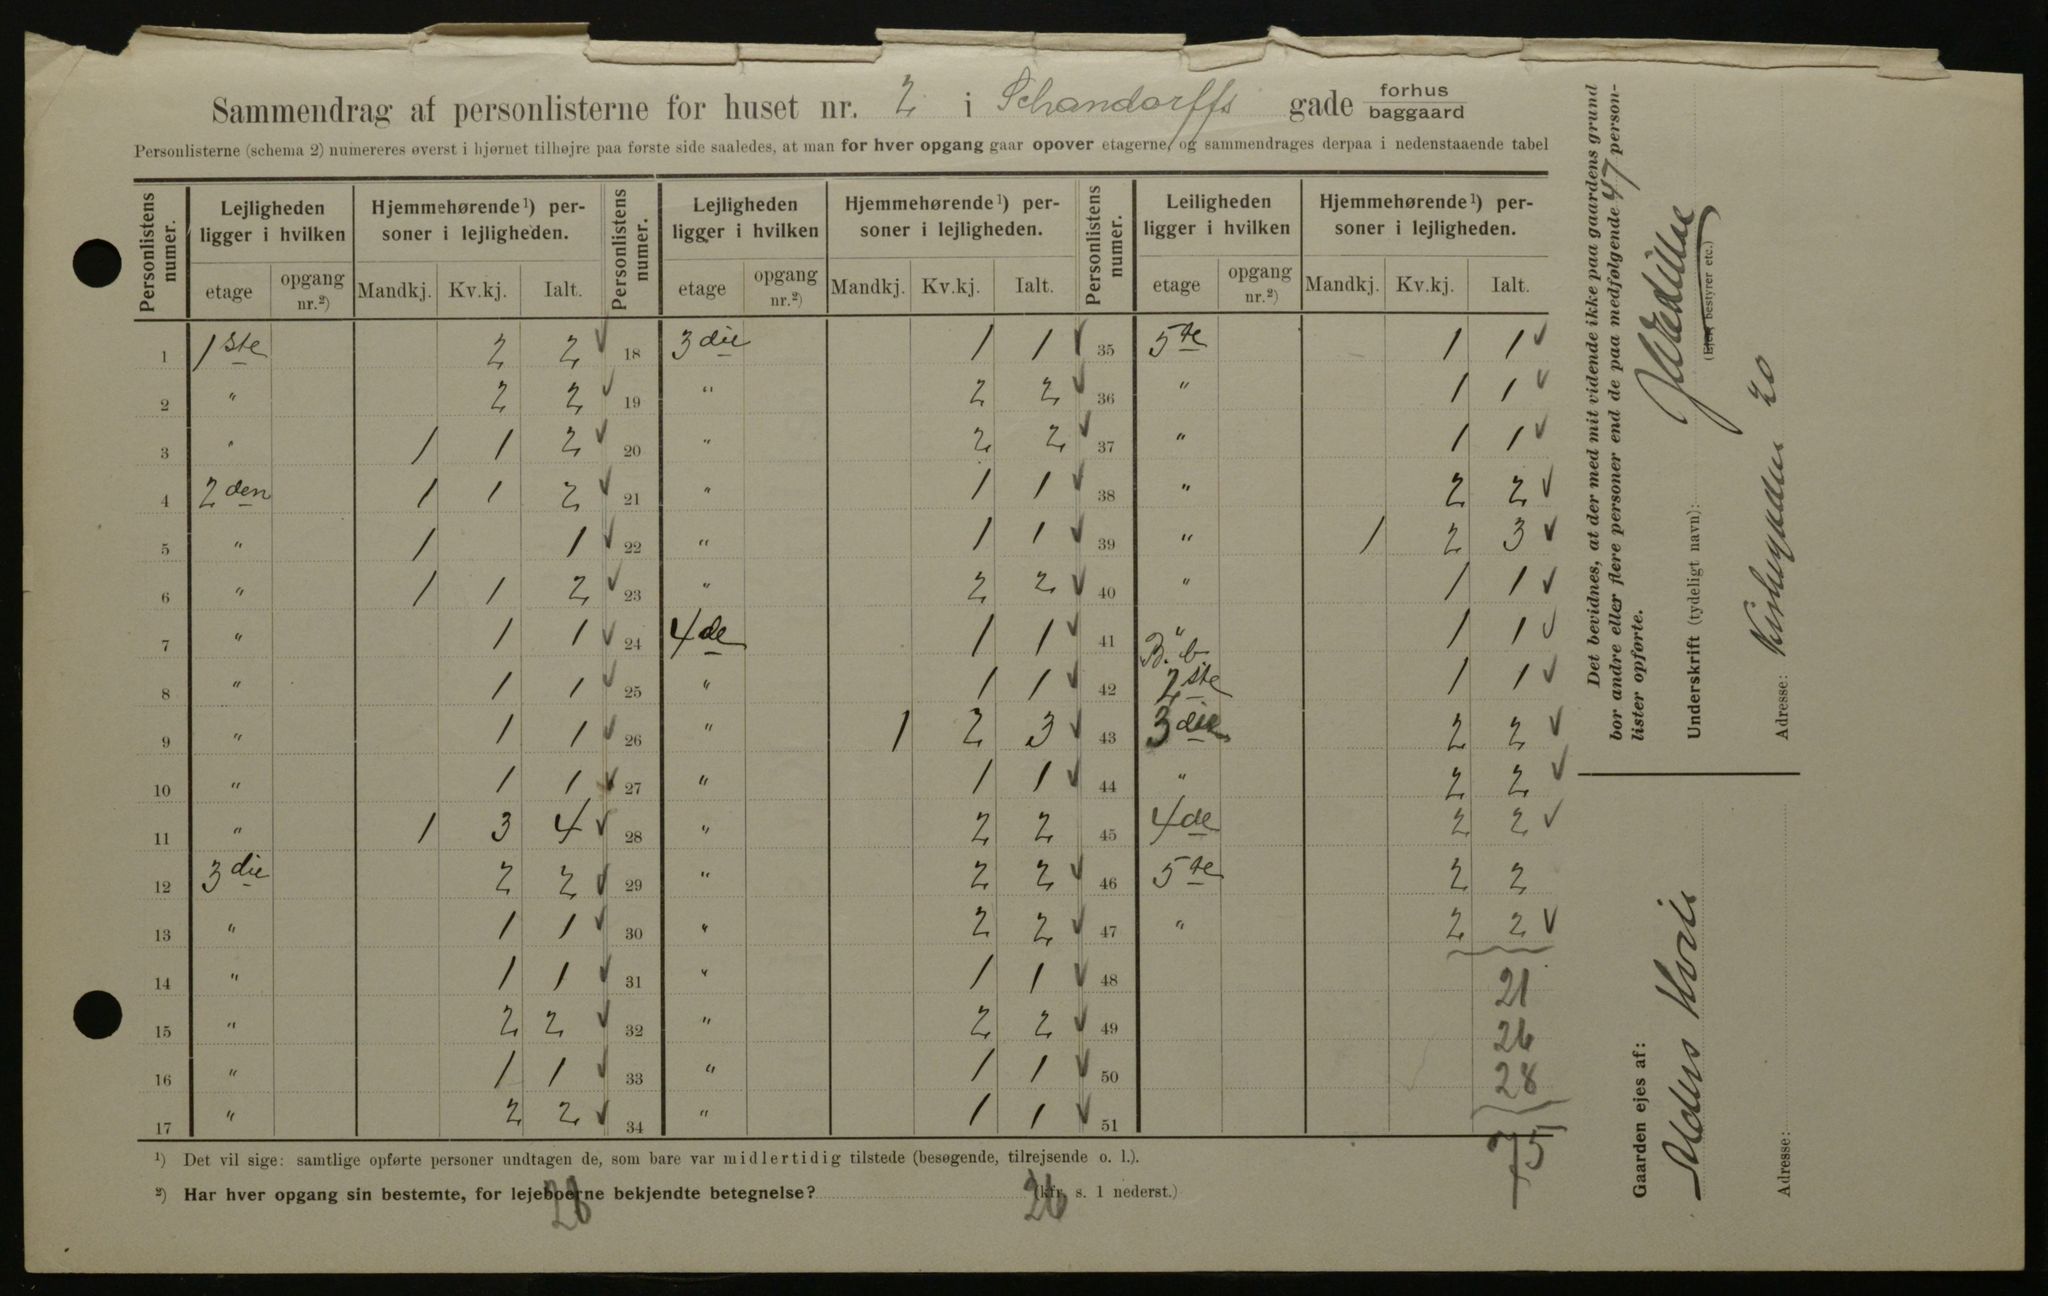 Sammendrag af personlisterne for huset nr. 2 i Schandorffs gade forhus baggaard
Personlisterne (schema 2) numereres øverst i hjørnet tilhøjre paa første side saaledes, at man for hver opgang gaar opover etagerne, og sammendrages derpaa i nedenstaaende tabel
Personlistens numer. Lejligheden ligger i hvilken Hjemmehørende¹) personer i lejligheden. Personlistens numer. Lejligheden ligger i hvilken Hjemmehørende¹) personer i lejligheden. Personlistens numer. Leiligheden ligger i hvilken Hjemmehørende¹) personer i lejligheden.
etage opgang nr.²) Mandkj. Kv.kj. Ialt. etage opgang nr.²) Mandkj. Kv.kj. Ialt. etage opgang nr.²) Mandkj. Kv.kj. Ialt.
1 1ste 2 2 ✓ 18 3die 1 1 ✓ 35 5te 1 1 ✓
2 " 2 2 ✓ 19 " 2 2 ✓ 36 " 1 1 ✓
3 " 1 1 2 ✓ 20 " 2 2 ✓ 37 " 1 1 ✓
4 2den 1 1 2 ✓ 21 " 1 1 ✓ 38 " 2 2 ✓
5 " 1 1 ✓ 22 " 1 1 ✓ 39 " 1 2 3 ✓
6 " 1 1 2 ✓ 23 " 2 2 ✓ 40 " 1 1 ✓
7 " 1 1 ✓ 24 4de 1 1 ✓ 41 " 1 1 ✓
8 " 1 1 ✓ 25 " 1 1 ✓ 42 B.b. 2ste 1 1 ✓
9 " 1 1 ✓ 26 " 1 2 3 ✓ 43 3die 2 2 ✓
10 " 1 1 ✓ 27 " 1 1 ✓ 44 " 2 2 ✓
11 " 1 3 4 ✓ 28 " 2 2 45 4de 2 2 ✓
12 3die 2 2 ✓ 29 " 2 2 ✓ 46 5te 2 2
13 " 1 1 ✓ 30 " 2 2 ✓ 47 " 2 2 ✓
14 " 1 1 ✓ 31 " 1 1 ✓ 48 21
15 " 2 2 ✓ 32 " 2 2 ✓ 49 26
16 " 1 1 ✓ 33 " 1 1 ✓ 50 28
17 " 2 2 ✓ 34 " 1 1 ✓ 51
75
¹) Det vil sige: samtlige opførte personer undtagen de, som bare var midlertidig tilstede (besøgende, tilrejsende o. l.).
²) Har hver opgang sin bestemte, for lejeboerne bekjendte betegnelse? (kfr. s. 1 nederst.)
28 26
Det bevidnes, at der med mit vidende ikke paa gaardens grund
bor andre eller flere personer end de paa medfølgende 47 person-
lister opførte.
Underskrift (tydeligt navn):
(Ejer, bestyrer etc.)
Adresse: 20
Gaarden ejes af:
Adresse: